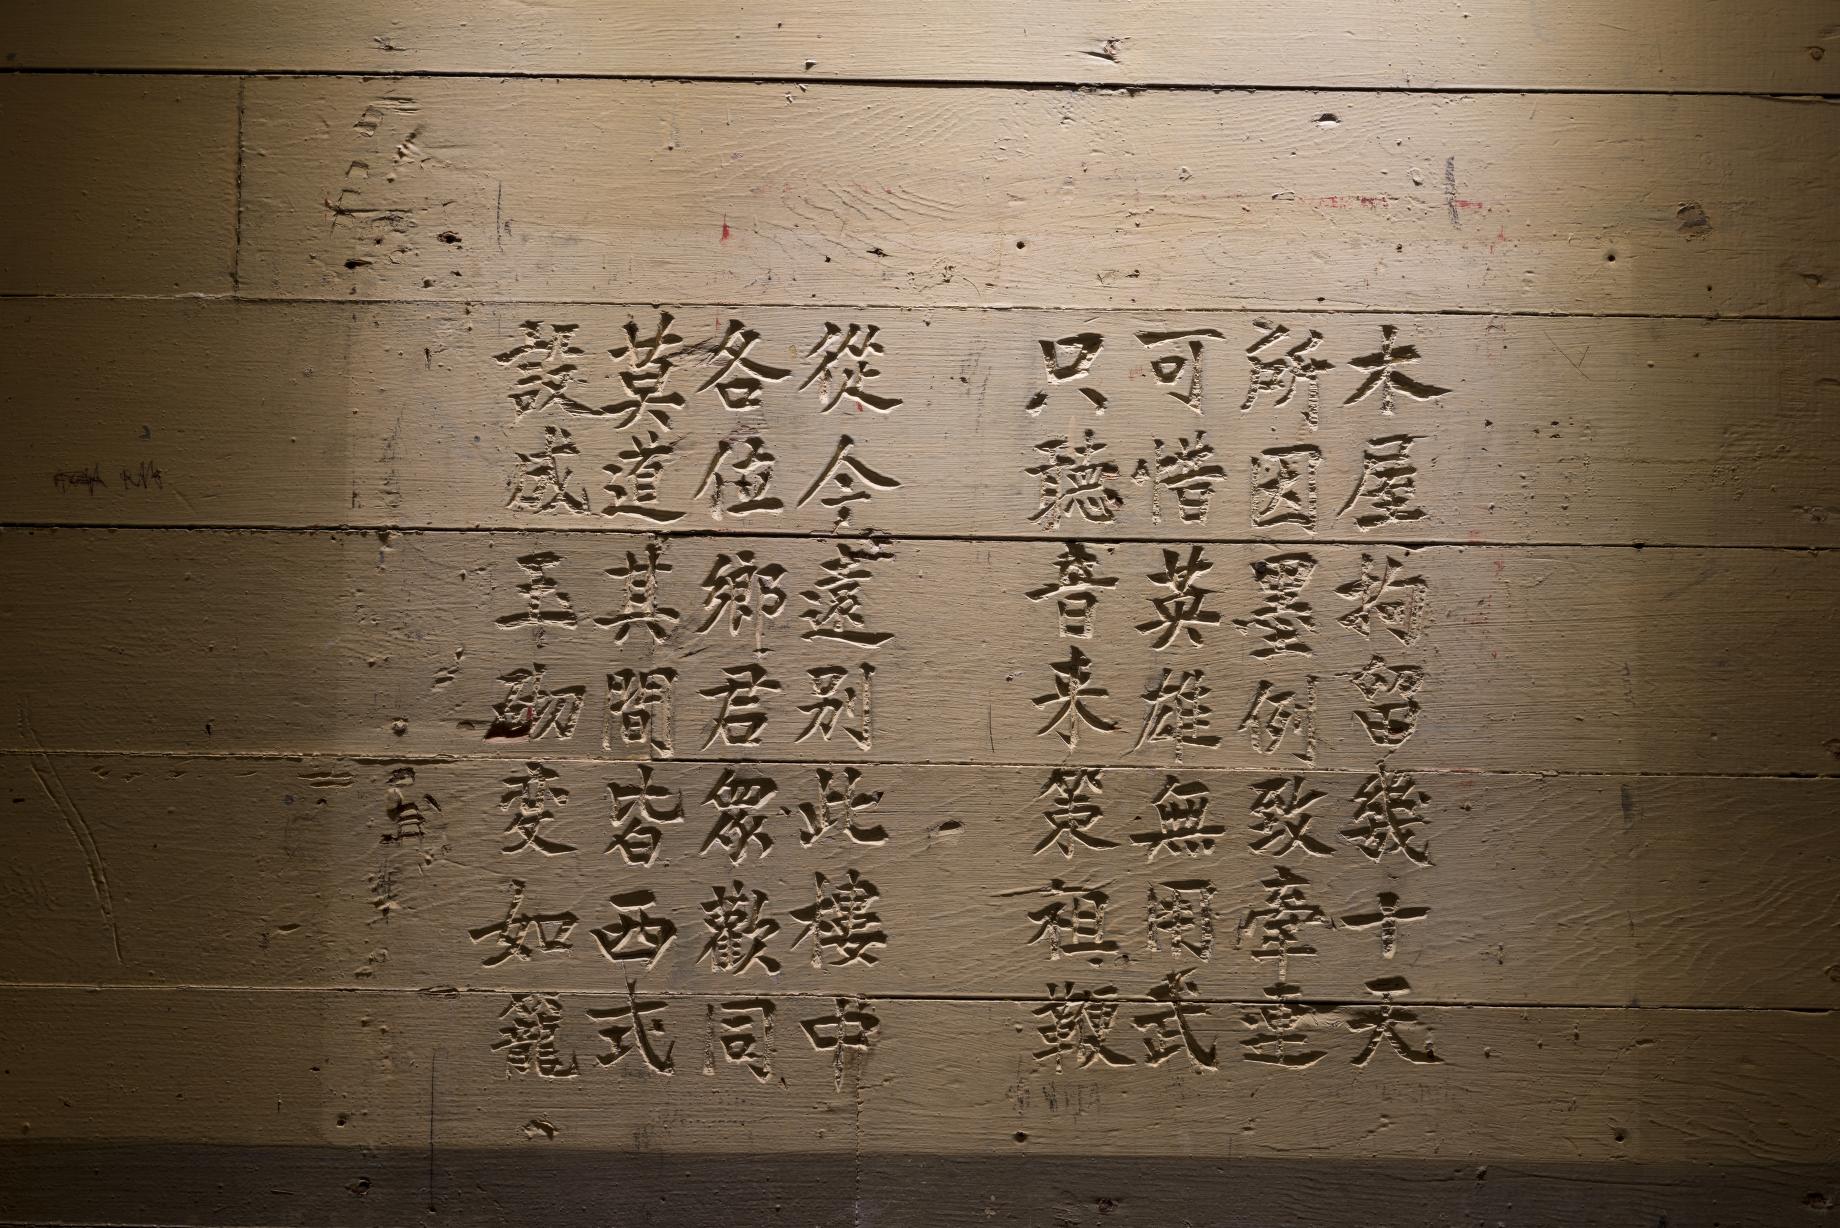 木屋拘留幾十天
所因墨例致牽連
可惜英雄無用武
只聽音来策祖鞭
從今遠別此樓中
各位鄉君眾歡同
莫道其間皆西式
設咸玉砌変如籠